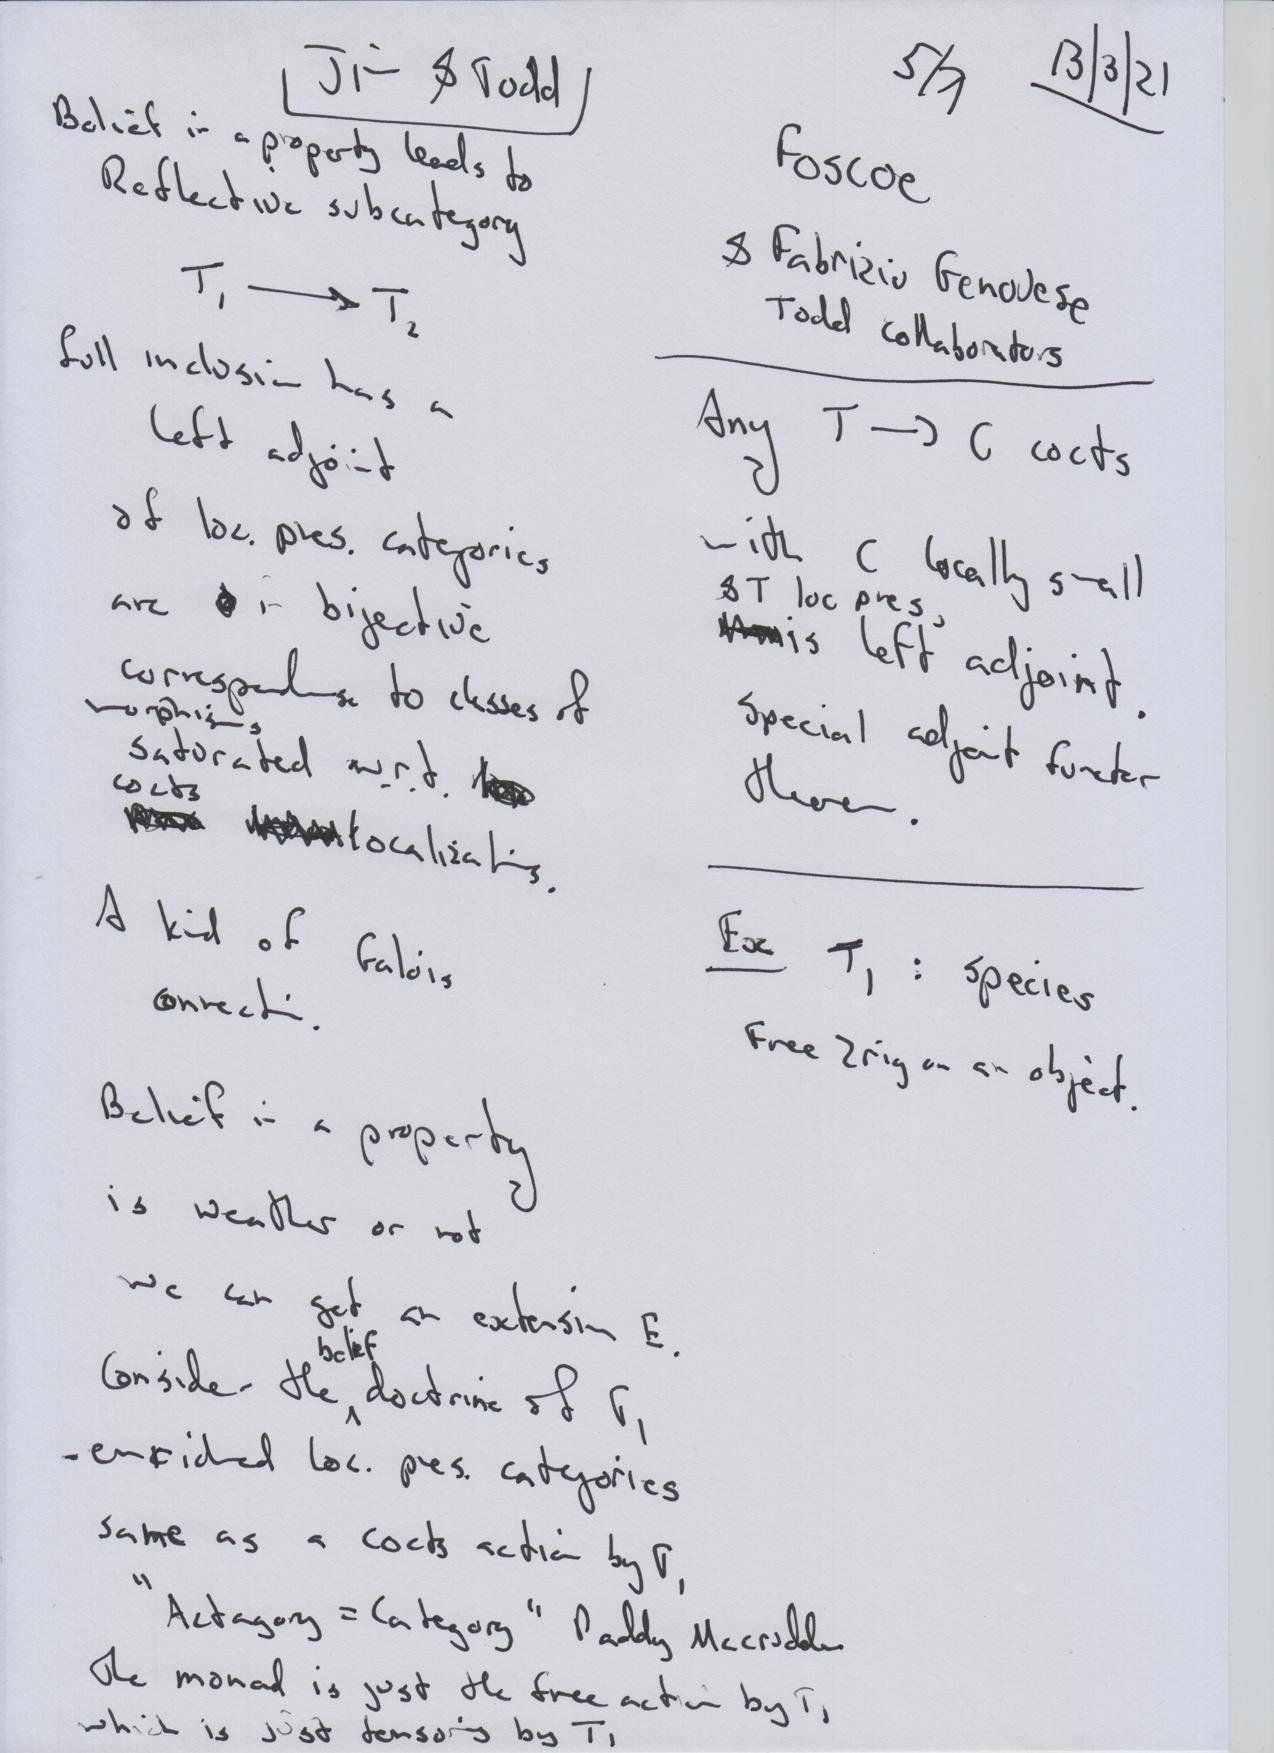 Jim & Todd
5/7 13/3/21
Belief in a property leads to
Reflective subcategory
T₁ → T₂
full inclusion has a
left adjoint
of loc. pres. categories
are in bijective
correspondence to classes of
morphisms
saturated w.r.t.
cocts
localizations.
A kind of Galois
connection.
Belief in a property
is weather or not
we can get an extension E.
belief
Consider the ^ doctrine of T₁
-enriched loc. pres. categories
same as a cocts action by T₁
"Actagory = Category" Paddy
The monad is just the free action by T₁
which is just tensoring by T₁
Foscoe
& Fabrizio Genovese
Todd collaborators
Any T → C cocts
with C locally small
& T loc pres,
is left adjoint.
Special adjoint functor
theorem.
Ex T₁ : species
Free 2rig on an object.